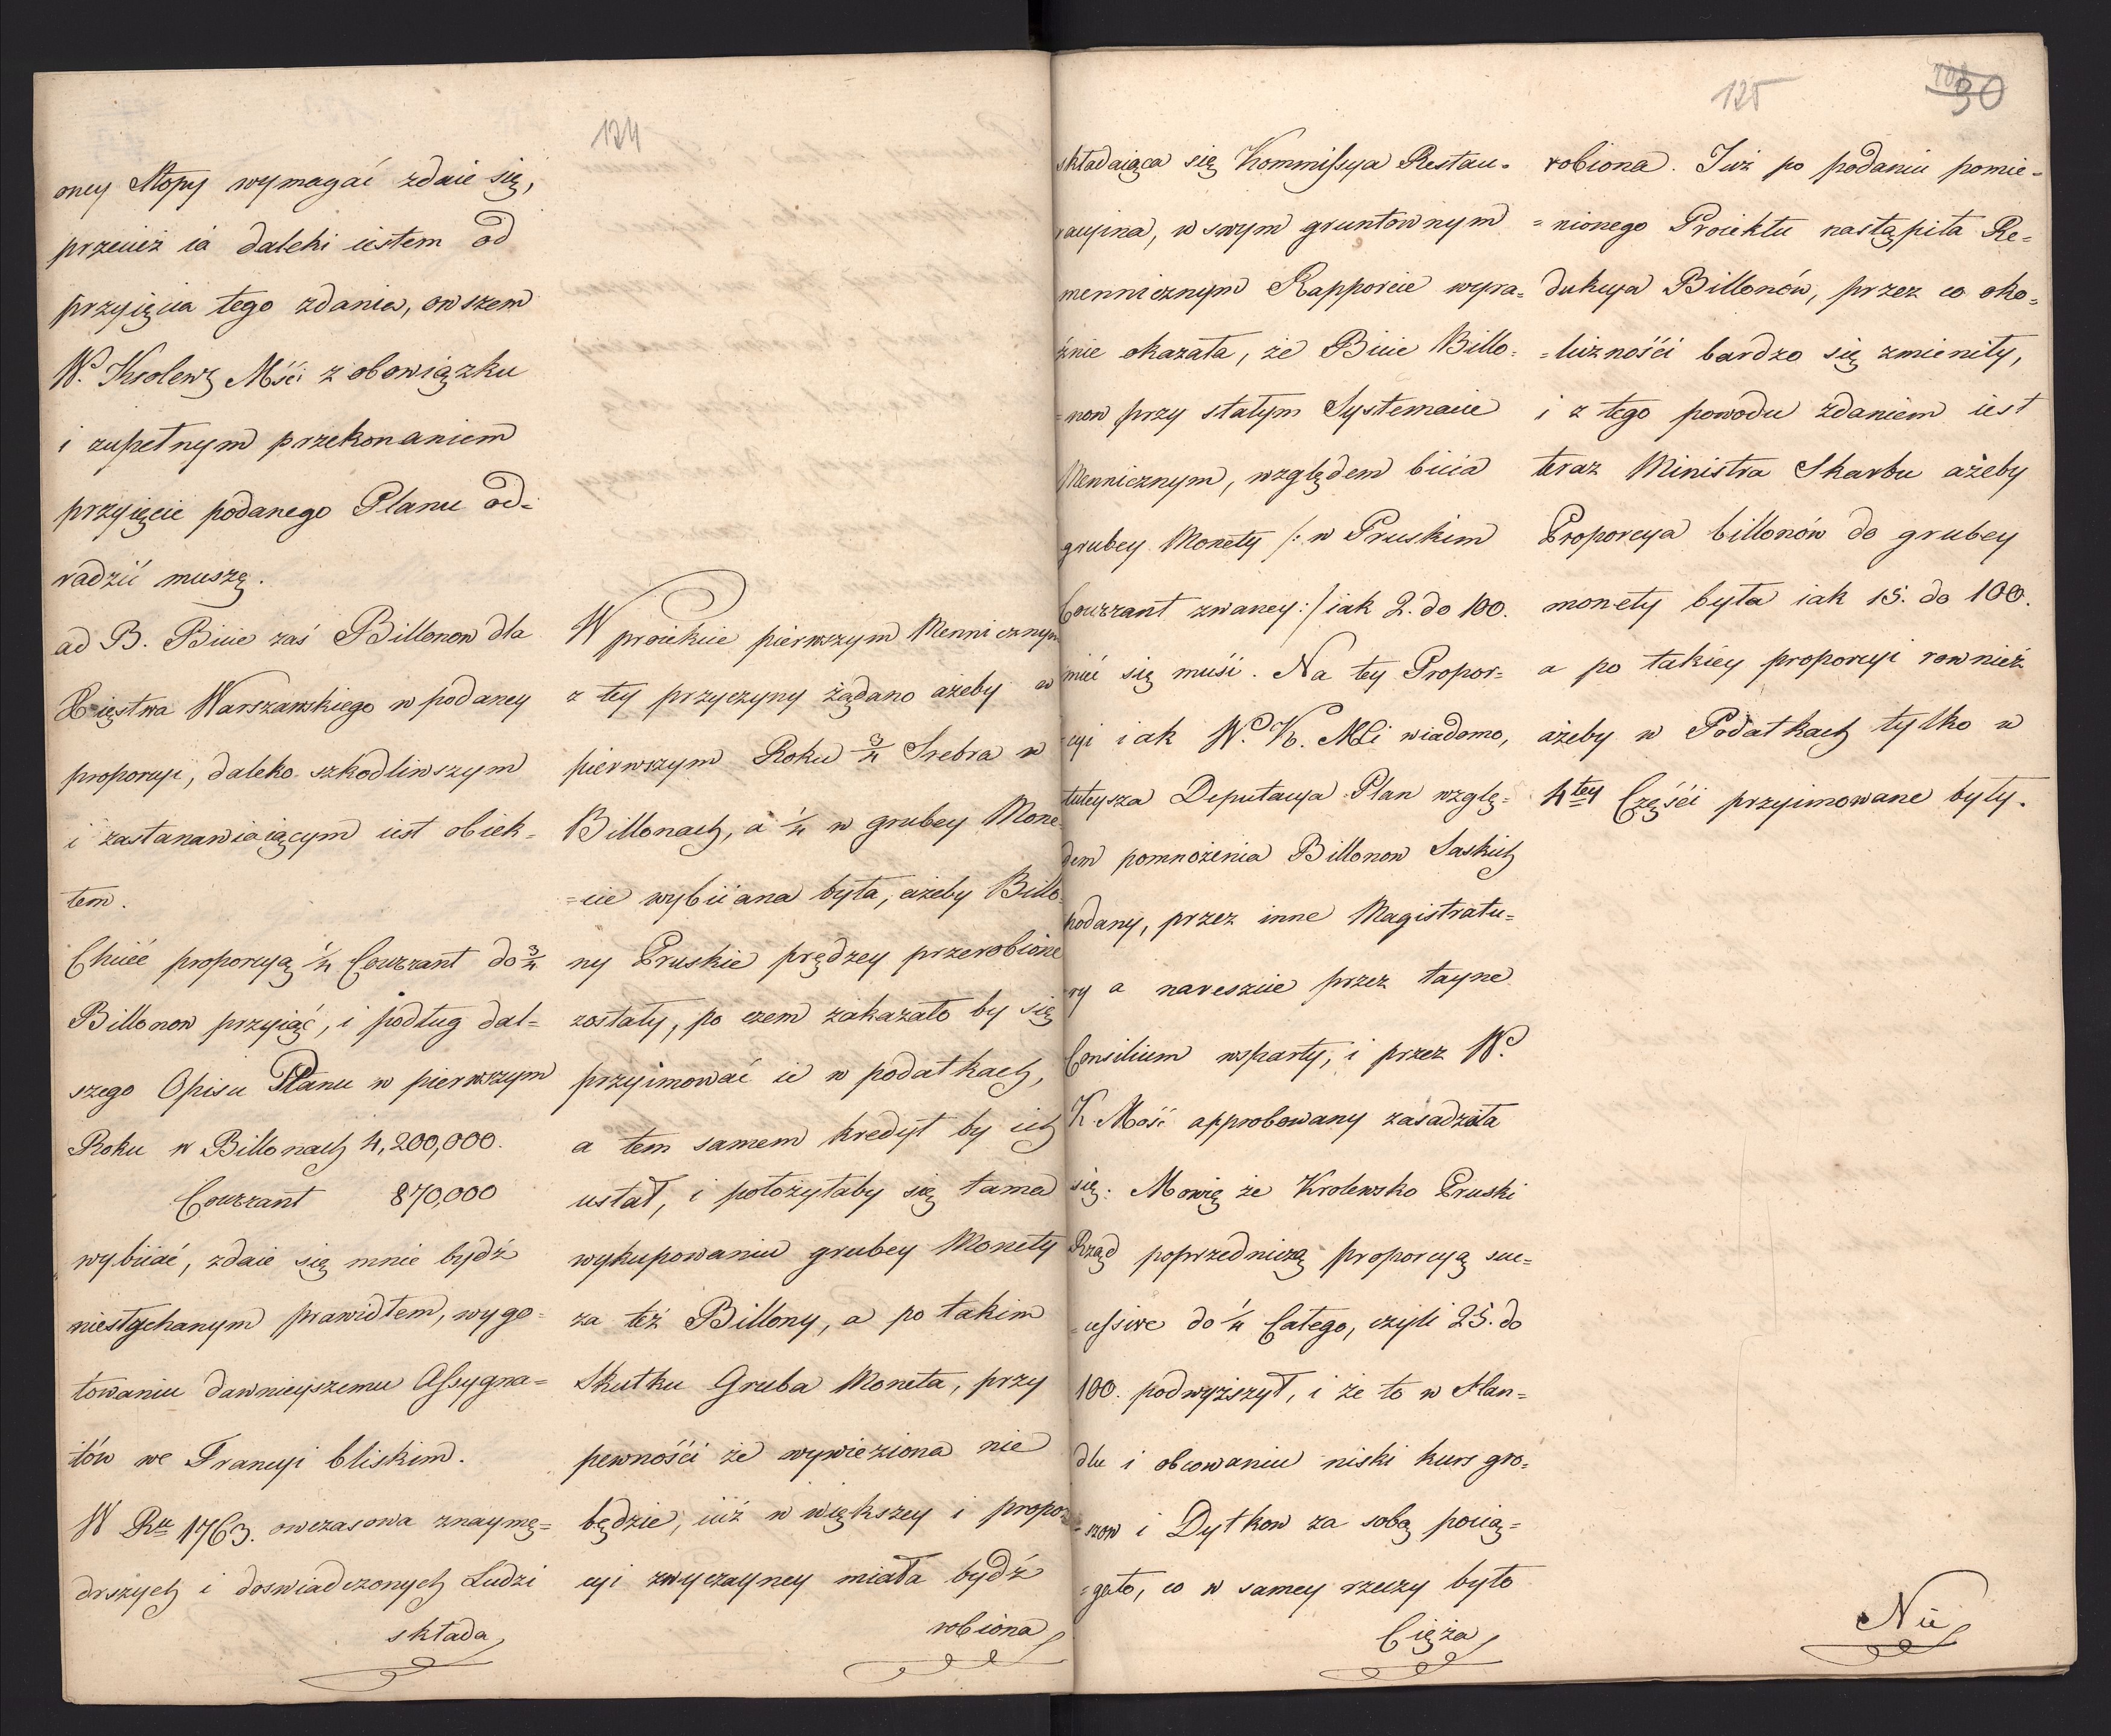 124
oney Stopy wymagać zdaie się,
przecież ia daleki iestem od
przyięcia tego zdania, owszem
W. Krolewz Mści z obowiązku
i zupełnym przekonaniem
przyięcie podanego Planu od=
radzić muszę.
ad B. Bicie zaś Billonow dla
Xięstwa Warszawskiego w podaney
proporcyi, daleko szkodliwszym
i zastanawiaiącym iest obiek=
tem.
Chcieć proporcyą 1/4 Courrant do 3/4
Billonow przyiąć, i podług dal=
szego Opisu Planu w pierwszym
Roku w Billonach 4,200,000.
Courrant 870,000
wybiiać, zdaie się mnie bydź
niesłychanym prawidłem, wygo=
towaniu dawnieyszemu Assygna=
tów we Francyi bliskim.
W Rku 1763. owczasowa znaymę=
drszych i doswiadczonych Ludzi
składa
W proiekcie pierwszym Mennicznym
z tey przyczyny żądano ażeby w
pierwszym Roku 3/4 Srebra w
Billonach, a 1/4 w grubey Mone
=cie wybiiana była, ażeby Billo
ny Pruskie prędzey przerobione
zostały, po czem zakazało by się
przyimować ie w podatkach,
a tem samem kredyt by ich
ustał, i położyłaby się tama
wykupowaniu grubey Monety
za też Billony, a po takim
Skutku Gruba Moneta, przy
pewnośći że wywieziona nie
będzie, iuż w większey i propor=
cyi zwyczayney miała bydź
robiona
125
30
składaiąca się Kommissya Restau=
racyina, w swym gruntownym
mennicznym Rapporcie wyra=
źnie okazała, że Bicie Billo=
=now przy stałym Systemacie
Mennicznym, względem bicia
grubey Monety /: w Pruskim
Courrant zwaney :/ iak 2. do 100.
mieć się muśi. Na tey Propor=
=cyi iak W. K. Mści wiadomo,
tuteysza Deputacya Plan wzglę=
dem pomnożenia Billonow Saskich
podany, przez inne Magistratu=
ry a nareszcie przez tayne
Consilium wsparty, i przez W.
K. Mość approbowany zasadzała
się. Mowię że Krolewsko Pruski
Rząd poprzedniczą proporcyą suc=
=cessive do 1/4 Całego, czyli 25. do
100. podwyższył, i że to w Han=
dlu i obcowaniu niski kurs gro=
=szow i Dytkow za sobą pocią=
=gało, co w samey rzeczy było
Cięża
robiona. Już po podaniu pomie=
=nionego Proiektu nastąpiła Re=
dukcya Billonów, przez co oko=
=licznośći bardzo się zmieniły,
i z tego powodu zdaniem iest
teraz Ministra Skarbu ażeby
Proporcya billonów do grubey
monety była iak 15. do 100.
a po takiey proporcyi rownież
ażeby w Podatkach tylko w
4tey Częśći przyimowane były.
Nie